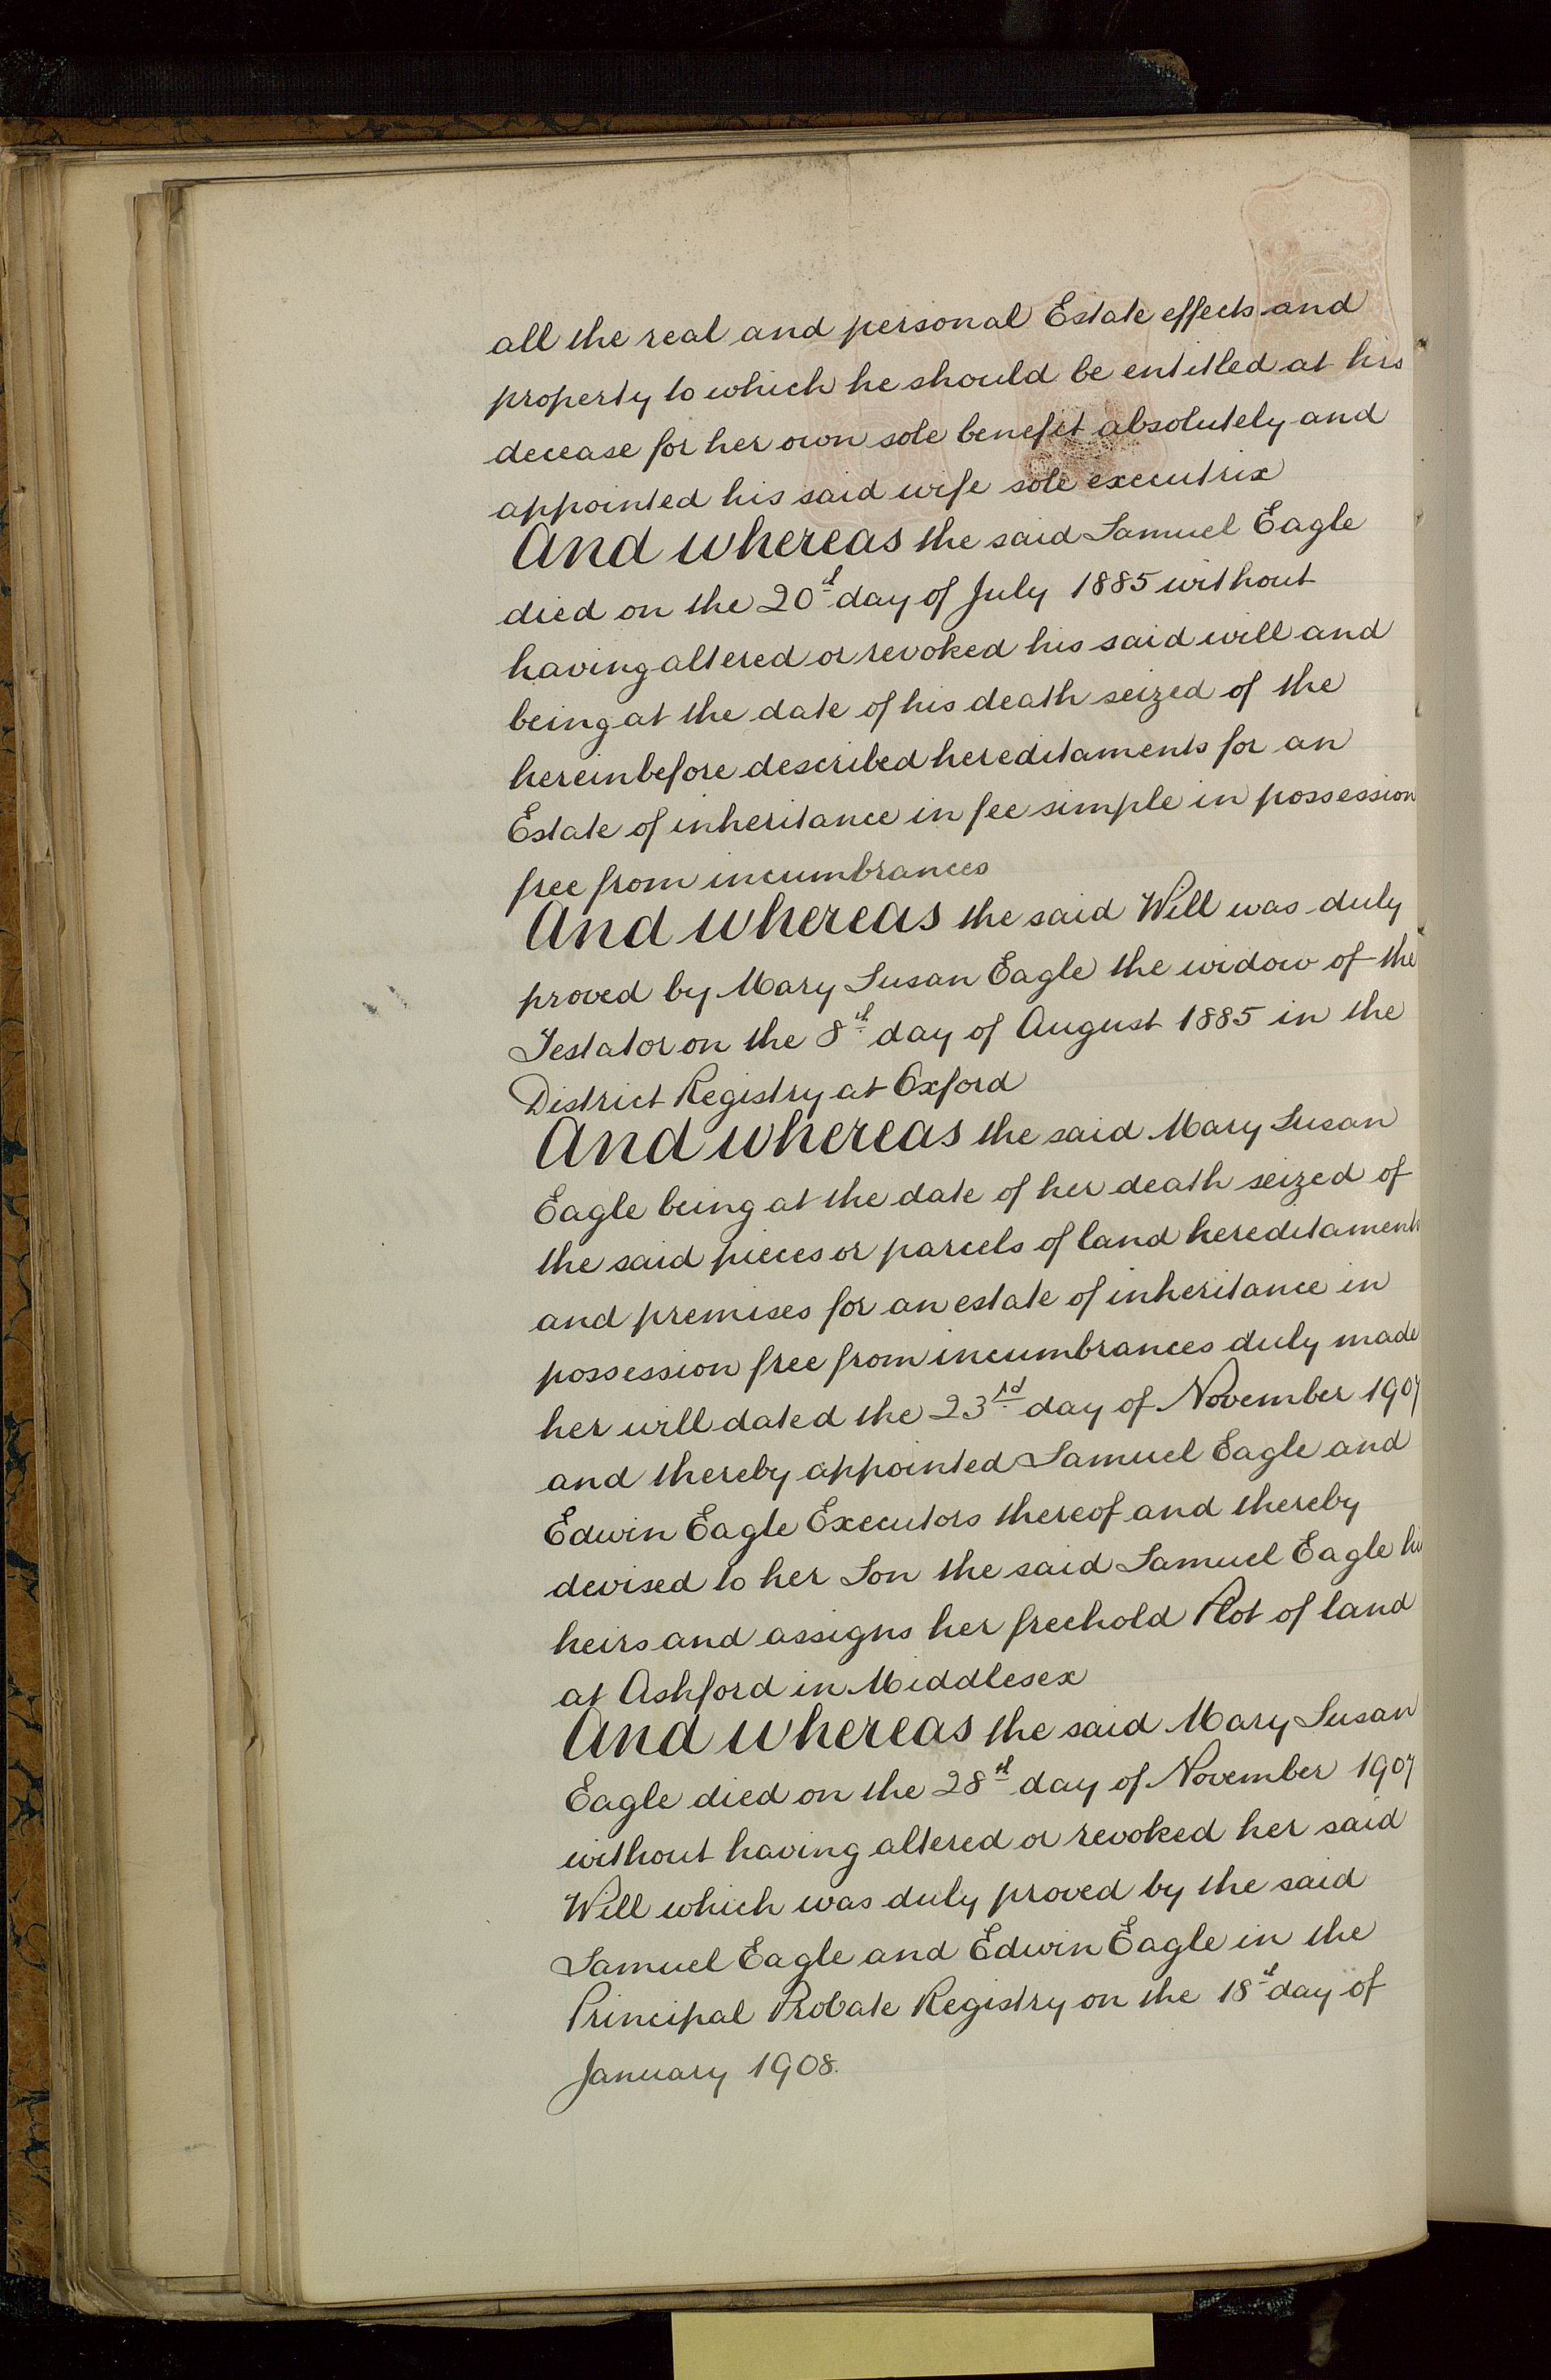 all the real and personal Estate effects and
property to which he should be entitled at his
decease for her own sole benefit absolutely and
appointed his said wife sole executrix
And whereas the said Samuel Eagle
died on the 20th day of July 1885 without
having altered or revoked his said will and
being at the date of his death seized of the
hereinbefore described hereditaments for an
Estate of inheritance in fee simple in possession
free from incumbrances
And whereas the said Will was duly
proved by Mary Susan Eagle the widow of the
Testator on the 8th day of August 1885 in the
District Registry at Oxford
And whereas the said Mary Susan
Eagle being at the date of her death seized of
the said pieces or parcels of land hereditaments
and premises for an estate of inheritance in
possession free from incumbrances duly made
her will dated the 23rd day of November 1907
and thereby appointed Samuel Eagle and
Edwin Eagle Executors thereof and thereby
devised to her Son the said Samuel Eagle his
heirs and assigns her freehold Plot of land
at Ashford in Middlesex
And whereas the said Mary Susan
Eagle died on the 28th day of November 1907
without having altered or revoked her said
Will which was duly proved by the said
Samuel Eagle and Edwin Eagle in the
Principal Probate Registry on the 18th day of
January 1908.